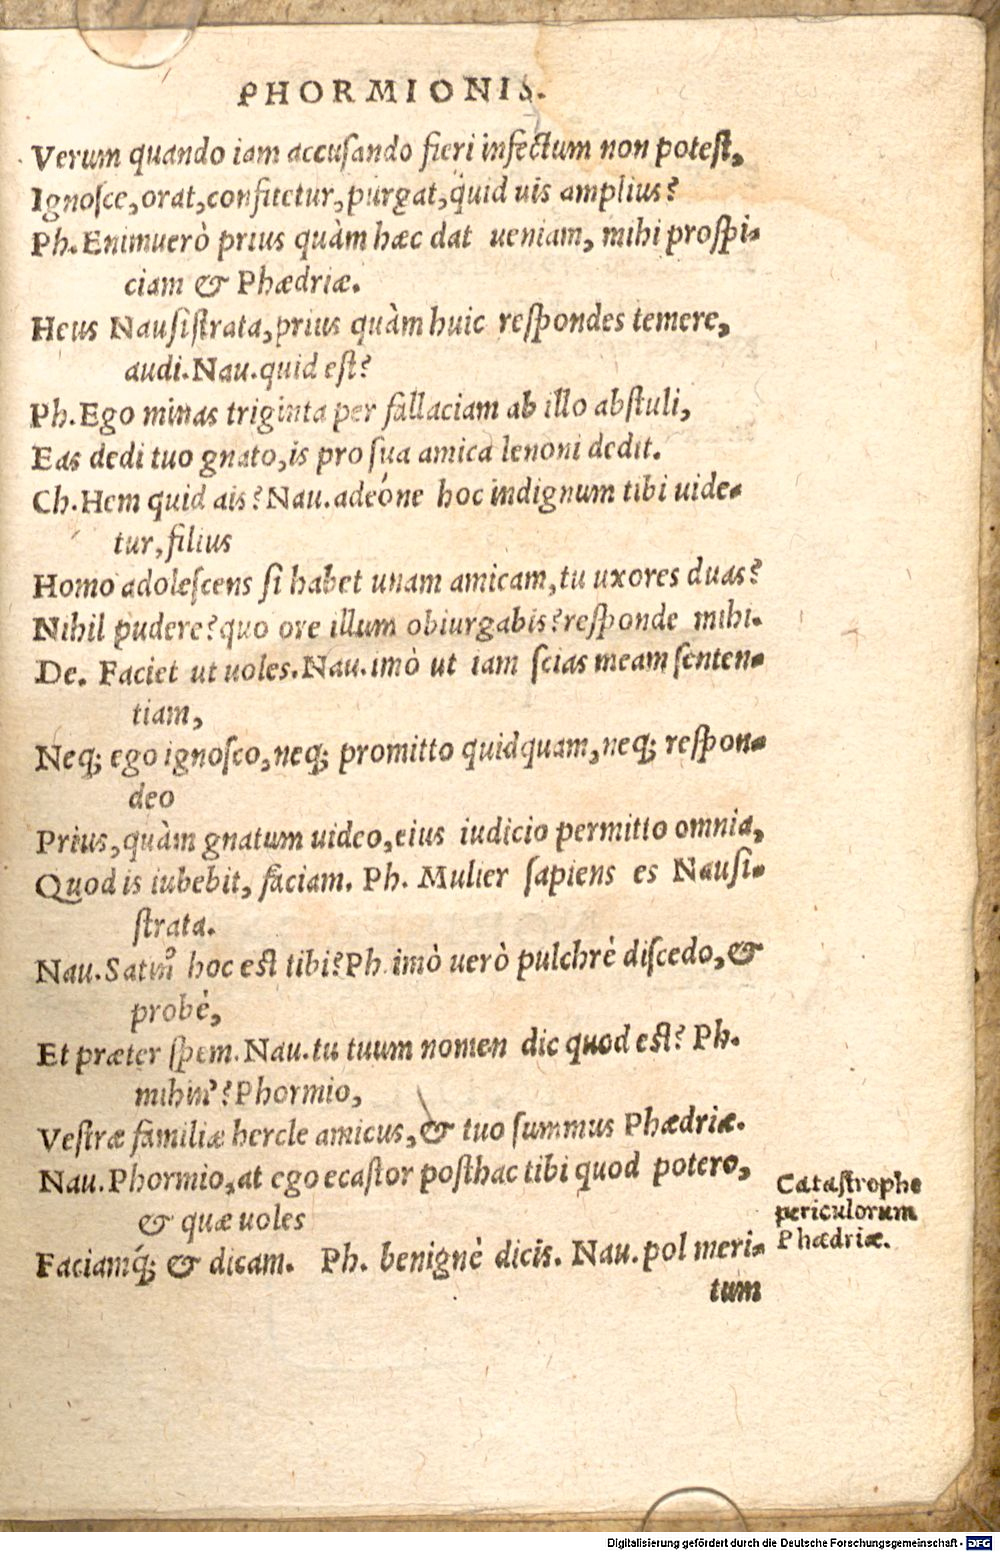 PHORMIONIS.
Verum quando iam accusando fieri infectum non potest,
Ignosce, orat, confitetur, purgat, quid uis amplius?
Ph. Enimuerò prius quàm hæc dat ueniam, mihi prospi-
ciam & Phædriæ.
Heus Nausistrata, prius quàm huic respondes temere,
audi. Nau. quid est?
Ph. Ego minas triginta per fallaciam ab illo abstuli,
Eas dedi tuo gnato, is pro sua amica lenoni dedit.
Ch. Hem quid ais? Nau. adeóne hoc indignum tibi uide-
tur, filius
Homo adolescens si habet unam amicam, tu uxores duas?
Nihil pudere? quo ore illum obiurgabis? responde mihi.
De. Faciet ut uoles. Nau. imò ut iam scias meam senten-
tiam,
Neq; ego ignosco, neq; promitto quidquam, neq; respon-
deo
Prius, quàm gnatum uideo, eius iudicio permitto omnia,
Quod is iubebit, faciam. Ph. Mulier sapiens es Nausi-
strata.
Nau. Satin' hoc est tibi? Ph. imò uerò pulchrè discedo, &
probè,
Et præter spem. Nau. tu tuum nomen dic quod est? Ph.
mihin'? Phormio,
Vestræ familiæ hercle amicus, & tuo summus Phædriæ.
Nau. Phormio, at ego ecastor posthac tibi quod potero,
& quæ uoles
Faciamq́; & dicam. Ph. benignè dicis. Nau. pol meri-
tum
Catastrophe
periculorum
Phædriæ.
Digitalisierung gefördert durch die Deutsche Forschungsgemeinschaft - DFG